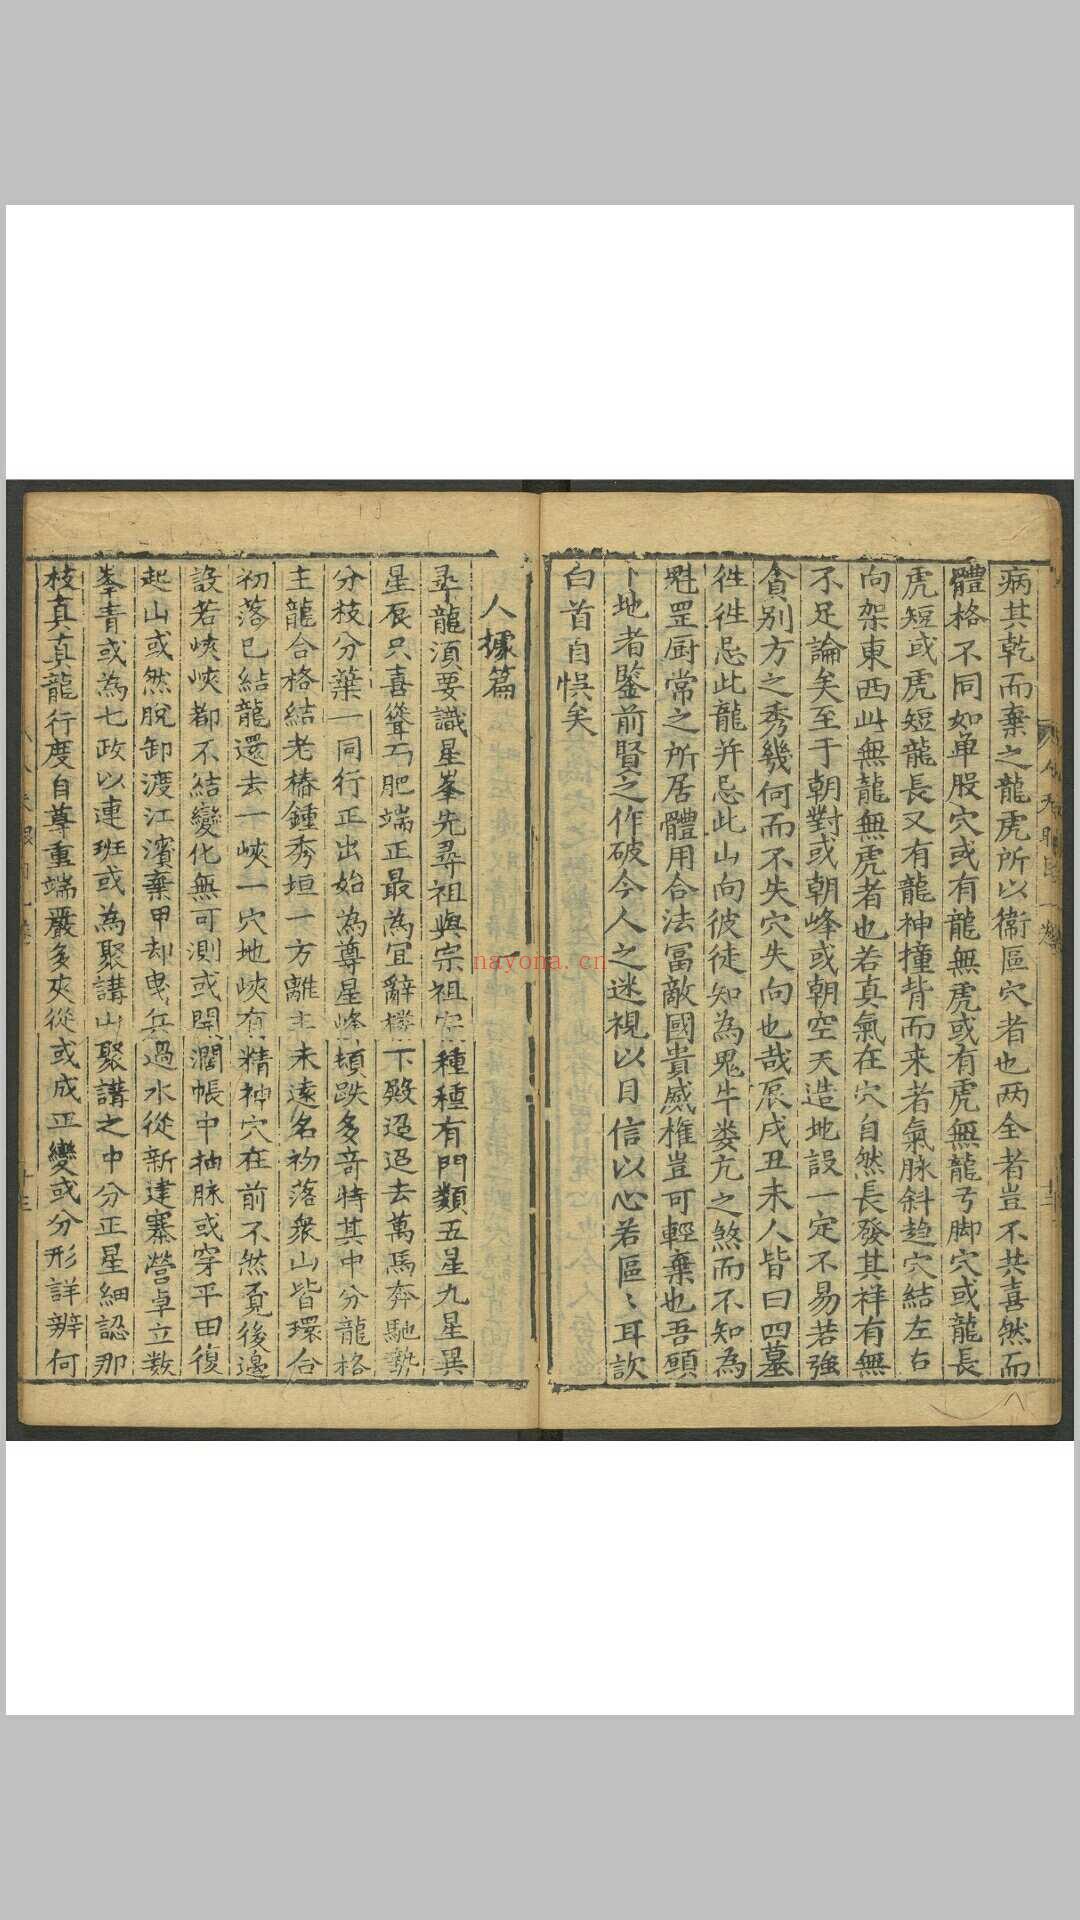 病其乾而棄之龍虎所以衛區穴者也两全者豈不共喜然而
體格不同如单股穴或有龍無虎或有虎無龍弓脚穴或龍長
虎短或虎短龍長又有龍神撞背而来者氣脉斜趋穴結左右
向架東西此無龍無虎者也若真氣在穴自然長發其祥有無
不足論矣至于朝對或朝峰或朝空天造地設一定不易若強
貪别方之秀幾何而不失穴失向也哉辰戌丑未人皆曰四墓
徃徃忌此龍并忌此山向彼徒知為鬼牛娄亢之煞而不知為
魁罡厨常之所居體用合法冨敵國貴威權豈可輕棄也吾願
卜地者鑒前賢之作破今人之迷視以目信以心若區〻耳歆
白首自悞矣
人據篇
尋龍須要識星峯先尋祖與宗祖宗種種有門類五星九星異
星辰只喜聳与肥端正最為宜辭樓下殿迢迢去萬馬奔馳勢
分枝分葉一同行正出始為尊星峰頓跌多竒特其中分龍格
主龍合格結老樁鍾秀垣一方離主未遠名初落衆山皆環合
初落已結龍還去一峽一穴地峽有精神穴在前不然覔後邊
設若峽峽都不結變化無可測或開濶帳中抽脉或穿平田復
起山或然脫卸渡江濱棄甲却曳兵過水從新建寨營卓立数
峯青或為七政以連班或為聚講山聚講之中分正星細認那
枝真真龍行度自尊重端嚴多夾從或成正變或分形詳辨何
nayona.cn